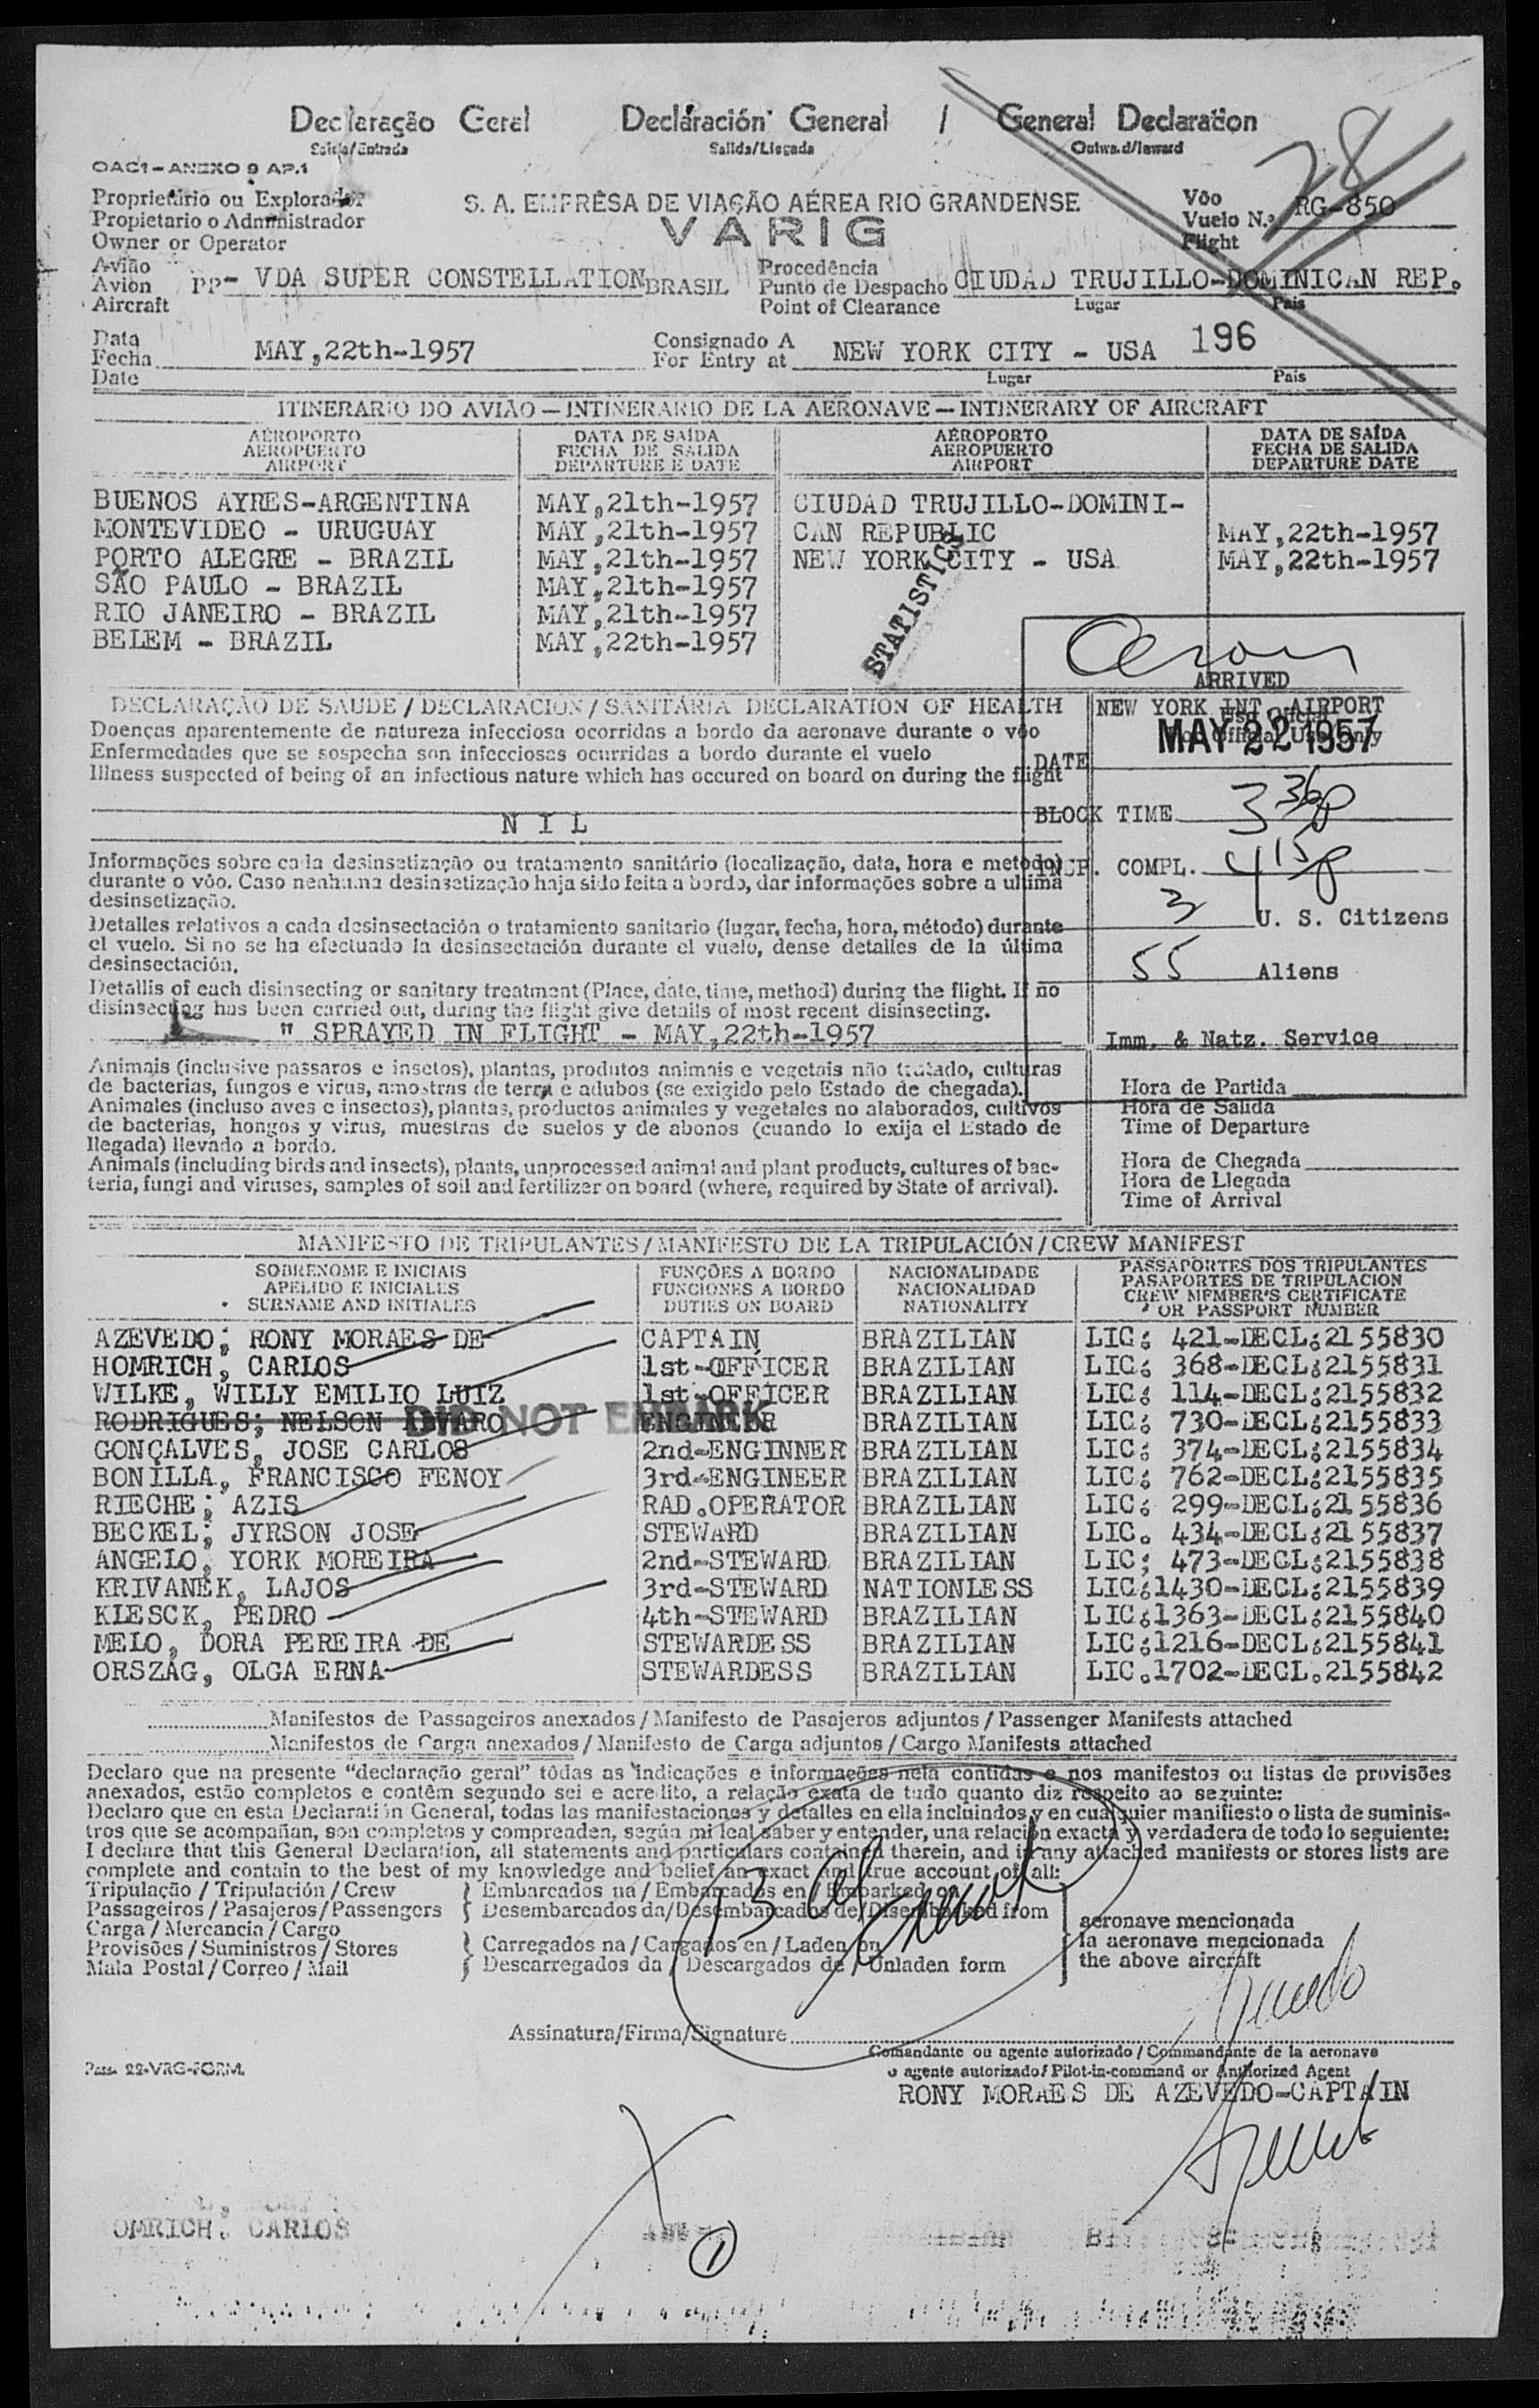 Declaração Geral Declaración General / General Declaration
Saída/Entrada Salida/Llegada Outward/Inward
OACI-ANEXO 9 AP.1
28
Proprietário ou Explorador
Propietario o Administrador
Owner or Operator
S. A. EMPRÊSA DE VIAÇÃO AÉREA RIO GRANDENSE
VARIG
Vôo
Vuelo N.º RG-850
Flight
Avião
Avion PP- VDA SUPER CONSTELLATION BRASIL
Aircraft
Procedência
Punto de Despacho CIUDAD TRUJILLO-DOMINICAN REP.
Point of Clearance Lugar País
Data
Fecha MAY,22th-1957
Date
Consignado A
For Entry at NEW YORK CITY - USA 196
Lugar País
ITINERARIO DO AVIÃO — INTINERARIO DE LA AERONAVE — INTINERARY OF AIRCRAFT
AÉROPORTO DATA DE SAÍDA AÉROPORTO DATA DE SAÍDA
AEROPUERTO FECHA DE SALIDA AEROPUERTO FECHA DE SALIDA
AIRPORT DEPARTURE E DATE AIRPORT DEPARTURE DATE
BUENOS AYRES-ARGENTINA MAY,21th-1957 CIUDAD TRUJILLO-DOMINI-
MONTEVIDEO - URUGUAY MAY,21th-1957 CAN REPUBLIC MAY,22th-1957
PORTO ALEGRE - BRAZIL MAY,21th-1957 NEW YORK CITY - USA MAY,22th-1957
SÃO PAULO - BRAZIL MAY,21th-1957
RIO JANEIRO - BRAZIL MAY,21th-1957
BELEM - BRAZIL MAY,22th-1957
STATISTICS
ARRIVED
NEW YORK INT. AIRPORT
Uso Oficial
For Official Use Only
DATE MAY 22 1957
BLOCK TIME 3 36p
INSP. COMPL. 4 15p
3 U. S. Citizens
55 Aliens
Imm. & Natz. Service
DECLARAÇÃO DE SAUDE / DECLARACION / SANITÁRIA DECLARATION OF HEALTH
Doenças aparentemente de natureza infecciosa ocorridas a bordo da aeronave durante o vôo
Enfermedades que se sospecha son infecciosas ocurridas a bordo durante el vuelo
Illness suspected of being of an infectious nature which has occured on board on during the flight
NIL
Informações sobre cada desinsetização ou tratamento sanitário (localização, data, hora e metodo)
durante o vôo. Caso nenhuma desinsetização haja sido feita a bordo, dar informações sobre a ultima
desinsetização.
Detalles relativos a cada desinsectación o tratamiento sanitario (lugar, fecha, hora, método) durante
el vuelo. Si no se ha efectuado la desinsectación durante el vuelo, dense detalles de la última
desinsectación.
Detallis of each disinsecting or sanitary treatment (Place, date, time, method) during the flight. If no
disinsecting has been carried out, during the flight give details of most recent disinsecting.
" SPRAYED IN FLIGHT - MAY,22th-1957
Animais (inclusive passaros e insetos), plantas, produtos animais e vegetais não tratado, culturas
de bacterias, fungos e virus, amostras de terra e adubos (se exigido pelo Estado de chegada).
Animales (incluso aves e insectos), plantas, productos animales y vegetales no alaborados, cultivos
de bacterias, hongos y virus, muestras de suelos y de abonos (cuando lo exija el Estado de
llegada) llevado a bordo.
Animals (including birds and insects), plants, unprocessed animal and plant products, cultures of bac-
teria, fungi and viruses, samples of soil and fertilizer on board (where, required by State of arrival).
Hora de Partida
Hora de Salida
Time of Departure
Hora de Chegada
Hora de Llegada
Time of Arrival
MANIFESTO DE TRIPULANTES / MANIFESTO DE LA TRIPULACIÓN / CREW MANIFEST
SOBRENOME E INICIAIS FUNÇÕES A BORDO NACIONALIDADE PASSAPORTES DOS TRIPULANTES
APELIDO E INICIALES FUNCIONES A BORDO NACIONALIDAD PASAPORTES DE TRIPULACION
SURNAME AND INITIALES DUTIES ON BOARD NATIONALITY CREW MEMBER'S CERTIFICATE
OR PASSPORT NUMBER
AZEVEDO; RONY MORAES DE CAPTAIN BRAZILIAN LIC: 421-DECL:2155830
HOMRICH, CARLOS 1st-OFFICER BRAZILIAN LIC: 368-DECL:2155831
WILKE, WILLY EMILIO LUIZ 1st-OFFICER BRAZILIAN LIC: 114-DECL:2155832
RODRIGUES; NELSON DID NOT EMBARK BRAZILIAN LIC: 730-DECL:2155833
GONÇALVES, JOSE CARLOS 2nd-ENGINNER BRAZILIAN LIC: 374-DECL:2155834
BONILLA, FRANCISCO FENOY 3rd-ENGINEER BRAZILIAN LIC: 762-DECL:2155835
RIECHE; AZIS RAD.OPERATOR BRAZILIAN LIC: 299-DECL:2155836
BECKEL; JYRSON JOSE STEWARD BRAZILIAN LIC. 434-DECL:2155837
ANGELO, YORK MOREIRA 2nd-STEWARD BRAZILIAN LIC: 473-DECL:2155838
KRIVANEK, LAJOS 3rd-STEWARD NATIONLESS LIC:1430-DECL:2155839
KLESCK, PEDRO 4th-STEWARD BRAZILIAN LIC:1363-DECL:2155840
MELO, DORA PEREIRA DE STEWARDESS BRAZILIAN LIC:1216-DECL:2155841
ORSZÁG, OLGA ERNA STEWARDESS BRAZILIAN LIC.1702-DECL.2155842
Manifestos de Passageiros anexados / Manifesto de Pasajeros adjuntos / Passenger Manifests attached
Manifestos de Carga anexados / Manifesto de Carga adjuntos / Cargo Manifests attached
Declaro que na presente "declaração geral" tôdas as indicações e informações nela contidas e nos manifestos ou listas de provisões
anexados, estão completos e contêm segundo sei e acredito, a relação exata de tudo quanto diz respeito ao seguinte:
Declaro que en esta Declaratión General, todas las manifestaciones y detalles en ella incluindos y en cualquier manifiesto o lista de suminis-
tros que se acompañan, son completos y comprenden, según mi leal saber y entender, una relación exacta y verdadera de todo lo seguiente:
I declare that this General Declaration, all statements and particulars contained therein, and in any attached manifests or stores lists are
complete and contain to the best of my knowledge and belief an exact and true account of all:
Tripulação / Tripulación / Crew } Embarcados na / Embarcados en / Embarked on
Passageiros / Pasajeros / Passengers } Desembarcados da / Desembarcados de / Disembarked from
Carga / Mercancia / Cargo
Provisões / Suministros / Stores } Carregados na / Cargados en / Laden on
Mala Postal / Correo / Mail } Descarregados da / Descargados de / Unladen form
aeronave mencionada
la aeronave mencionada
the above aircraft
Assinatura/Firma/Signature
Comandante ou agente autorizado / Commandante de la aeronave
o agente autorizado / Pilot-in-command or Anthorized Agent
Pass. 22-VRG-FORM.
RONY MORAES DE AZEVEDO-CAPTAIN
OMRICH. CARLOS
1